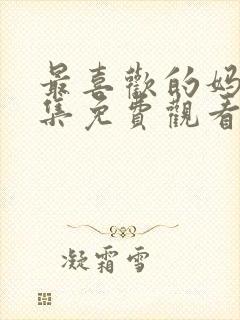 最喜歡的媽
集免費觀看
凝霜雪